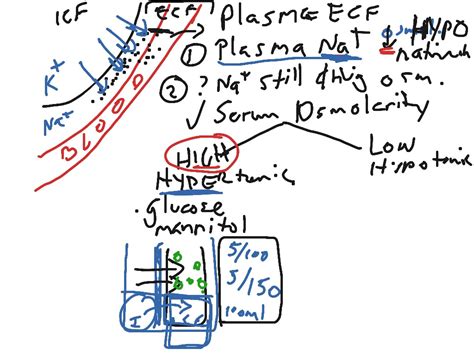 ICF
ECF
Plasma ECF
① Plasma Na+ ↓ HYPO
natremia
K+
Na+
BLOOD
② ? Na+ still driving osm.
✓ Serum Osmolarity
HIGH
HYPERtonic
Low
Hypotonic
· glucose
mannitol
5/100
5/150
100ml
I